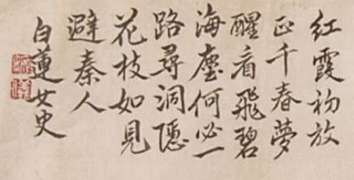 紅霞初放
正千春夢
醒看飛碧
海塵何必一
路尋洞隱
花枝如見
避秦人
白蓮女史